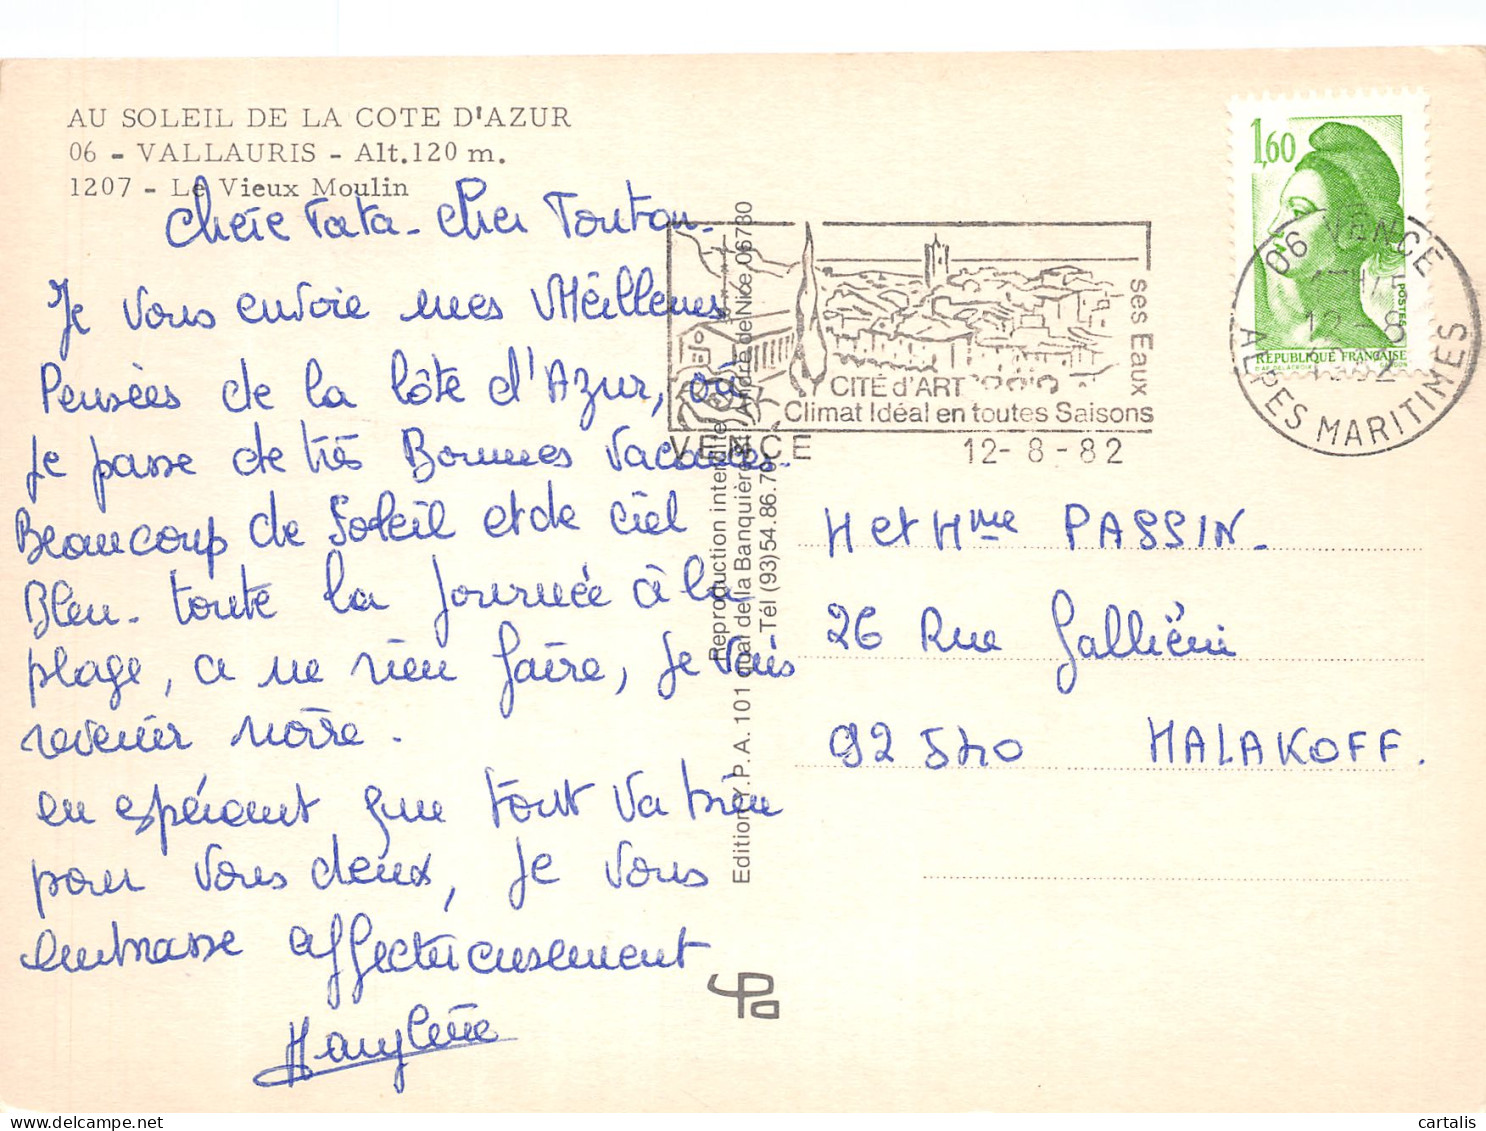 AU SOLEIL DE LA COTE D'AZUR
06 - VALLAURIS - Alt.120 m.
1207 - Le Vieux Moulin
Chère Tata - Cher Tonton -
Je vous envoie mes Meilleures
Pensées de la Côte d'Azur, où
je passe de très Bonnes Vacances.
Beaucoup de Soleil et de ciel
Bleu - toute la journée à la
plage, a ne rien faire, je vais
revenir noire.
en espérant que tout va bien
pour vous deux, je vous
embrasse affectueusement
Marylène
Edition Y.P.A. 101 quai de la Banquière St André de Nice 06730
Reproduction interdite
Tél (93) 54.86.70
CITÉ d'ART
Climat Idéal en toutes Saisons
ses Eaux
VENCE
12-8-82
1,60
POSTES
REPUBLIQUE FRANÇAISE
06 VENCE
12-8
1982
ALPES MARITIMES
M et Mme PASSIN -
26 Rue Galliéni
92540 MALAKOFF.
cartalis